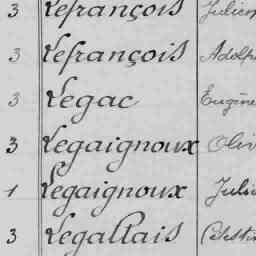 3 Lefrançois Julien
3 Lefrançois Adolp
3 Legac Eugène
3 Legaignoux Oliv
1 Legaignoux Juli
3 Legallais Célesti